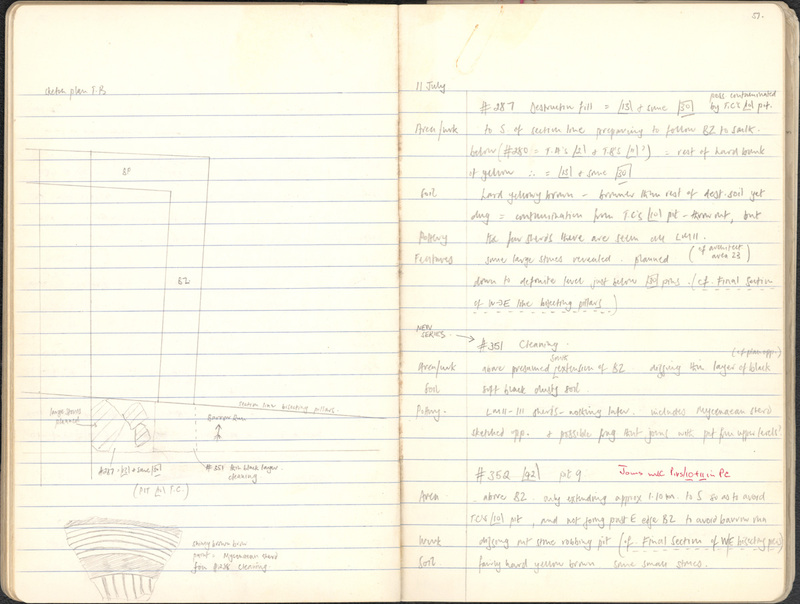 sketch plan T.B
BF
BZ
section line bisecting pillars
large stones
planned
Barrow Run
#287 = |13| + some |30|
#351 thin black layer
cleaning
(not |10| T.C.)
shiny brown
paint. Mycenaean sherd
from #351 cleaning
57.
11 July
#287 Destruction fill = |13| + some |30| poss contaminated
by T.C's |10| pit.
Area/work to S of section line preparing to follow BZ to South.
below (#280 = T.A's |2| + T.B's |0|) = rest of hard bank
of yellow ∴ = |13| + some |30|
Soil hard yellowy brown - browner than rest of dest. soil yet
dug = contamination from T.C's |10| pit - throw out, but
Pottery the few sherds there are seem all LMII.
Features some large stones revealed. planned (cf architect
area 23)
down to definite level just below |30| pins. (cf. Final Section
of W-E line bisecting pillars)
NEW
SERIES
#351 Cleaning.
(cf plan opp.)
Area/work above presumed South extension of BZ. digging thin layer of black
Soil soft black dusty soil.
Pottery. LMII-III sherds - nothing later. includes Mycenaean sherd
sketched opp. + possible frag that joins with pot from upper levels!
#352 |92| pit 9 Joins with
Area above BZ. only extending approx 1.10m. to S so as to avoid
T.C's |10| pit, and not going past E edge BZ to avoid barrow run
Work digging out stone robbing pit (cf. Final Section of WE bisecting piers)
Soil fairly hard yellow brown some small stones.